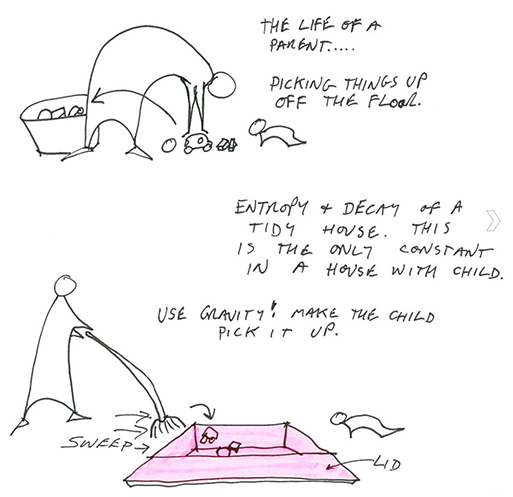 THE LIFE OF A
PARENT.....
PICKING THINGS UP
OFF THE FLOOR.
ENTROPY + DECAY OF A
TIDY HOUSE. THIS
IS THE ONLY CONSTANT
IN A HOUSE WITH CHILD.
USE GRAVITY! MAKE THE CHILD
PICK IT UP.
SWEEP
LID